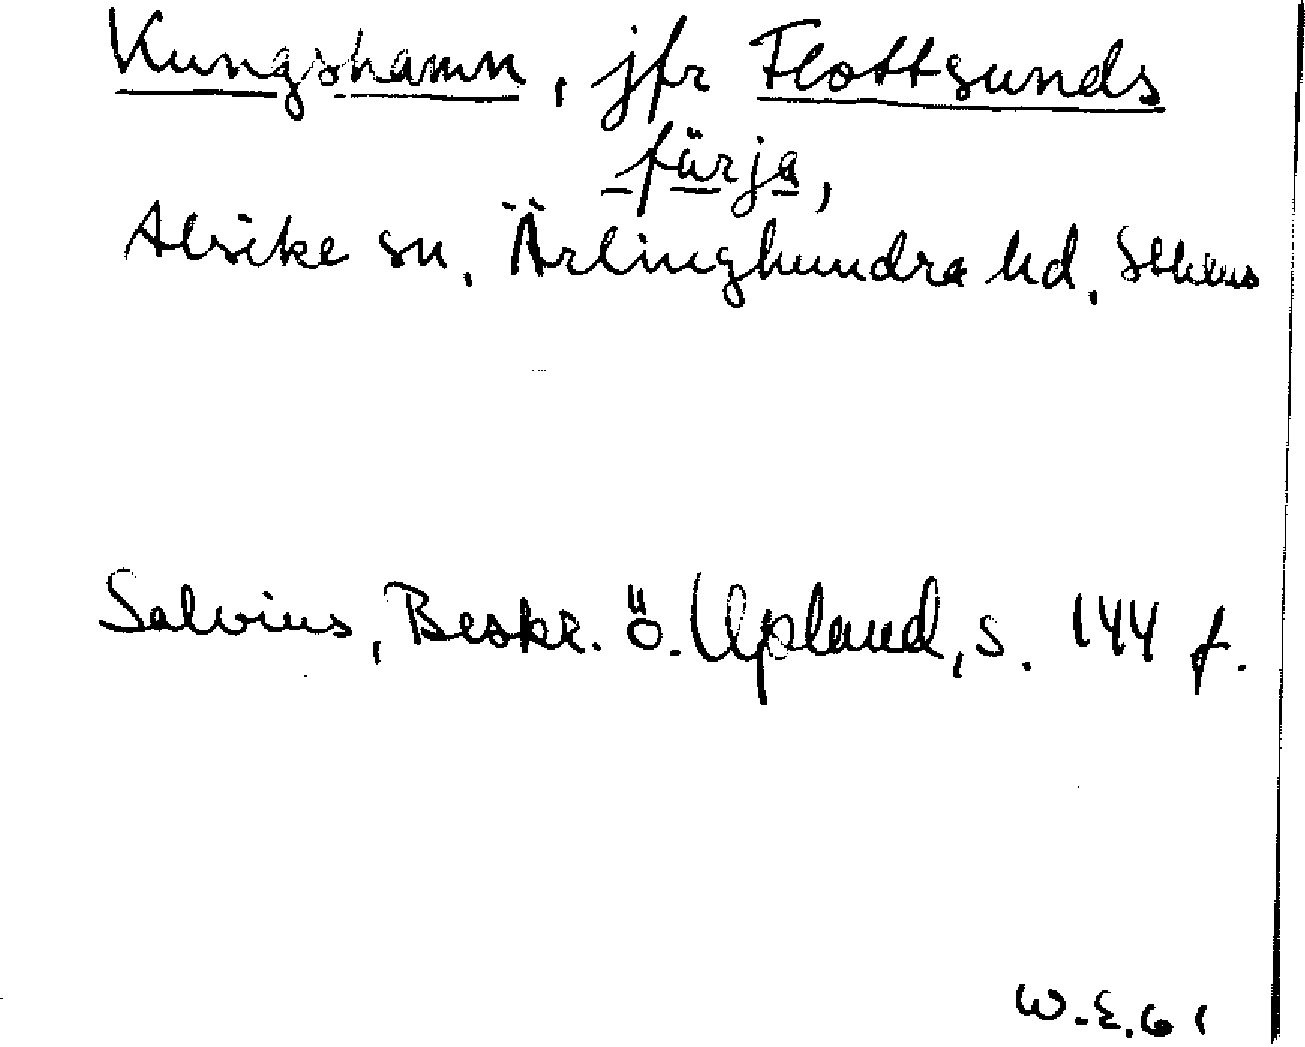 Kungshamn, jfr Flottsunds
färja,
Alsike sn, Ärlinghundra hd, Sthlms
Salvius, Beskr. ö. Upland, s. 144 f.
W.E.61